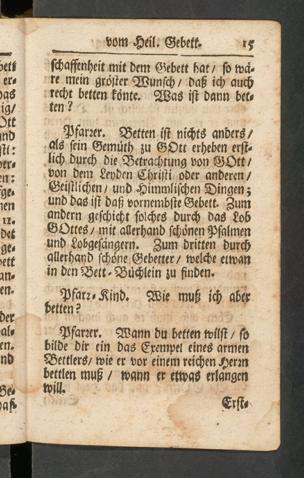 vom Heil. Gebett. 15
schaffenheit mit dem Gebett hat / so wä-
re mein gröster Wunsch / daß ich auch
recht betten könte. Was ist dann bet-
ten?
Pfarrer. Betten ist nichts anders /
als sein Gemüth zu GOtt erheben erst-
lich durch die Betrachtung von GOtt /
von dem Leyden Christi oder anderen /
Geistlichen / und Himmlischen Dingen;
und das ist daß vornembste Gebett. Zum
andern geschicht solches durch das Lob
GOttes / mit allerhand schönen Psalmen
und Lobgesängern. Zum dritten durch
allerhand schöne Gebetter / welche etwan
in den Bett-Büchlein zu finden.
Pfarr-Kind. Wie muß ich aber
betten?
Pfarrer. Wann du betten wilst / so
bilde dir ein das Exempel eines armen
Bettlers / wie er vor einem reichen Herrn
bettlen muß / wann er etwas erlangen
will.
Erst-